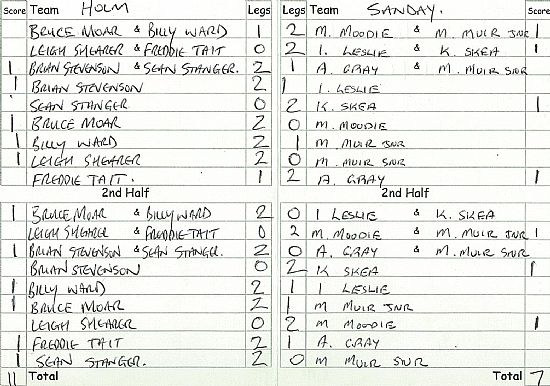 Score Team HOLM Legs Legs Team SANDAY. Score
BRUCE MOAR & BILLY WARD 1 2 M. MOODIE & M. MUIR JNR 1
LEIGH SHEARER & FREDDIE TAIT 0 2 I. LESLIE & K. SKEA 1
1 BRIAN STEVENSON & SEAN STANGER. 2 1 A. GRAY & M. MUIR SNR
1 BRIAN STEVENSON 2 1 I. LESLIE
SEAN STANGER 0 2 K. SKEA 1
1 BRUCE MOAR 2 0 M. MOODIE
1 BILLY WARD 2 1 M. MUIR JNR
1 LEIGH SHEARER 2 0 M. MUIR SNR
FREDDIE TAIT. 1 2 A. GRAY 1
2nd Half 2nd Half
1 BRUCE MOAR & BILLY WARD 2 0 I LESLIE & K. SKEA
LEIGH SHEARER & FREDDIE TAIT 0 2 M. MOODIE & M. MUIR JNR 1
1 BRIAN STEVENSON & SEAN STANGER. 2 0 A. GRAY & M. MUIR SNR
BRIAN STEVENSON 0 2 K SKEA 1
1 BILLY WARD 2 1 I LESLIE
1 BRUCE MOAR 2 1 M MUIR JNR
LEIGH SHEARER 0 2 M MOODIE 1
1 FREDDIE TAIT 2 1 A. GRAY
1 SEAN STANGER. 2 0 M MUIR SNR
11 Total Total 7